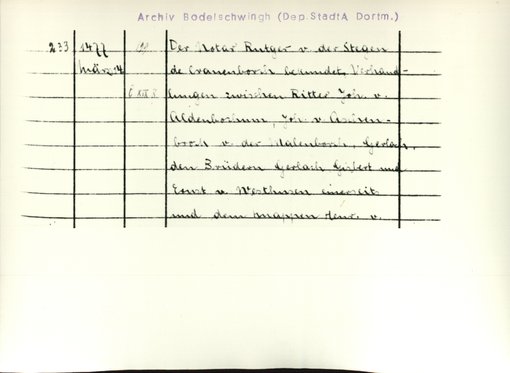 Archiv Bodelschwingh (Dep. StadtA Dortm.)
233 1477 Der Notar Rutger v. der Stegen
März 4 de Cranenborch bekundet, Verhand-
lungen zwischen Ritter Joh. v.
Aldenbochum, Joh. v. Aschen-
broch v. der Malenborch, Gerlach,
den Brüdern Gerlach Gisbert und
Ernst v. Westhusen einerseits
und dem Knappen Henr. v.